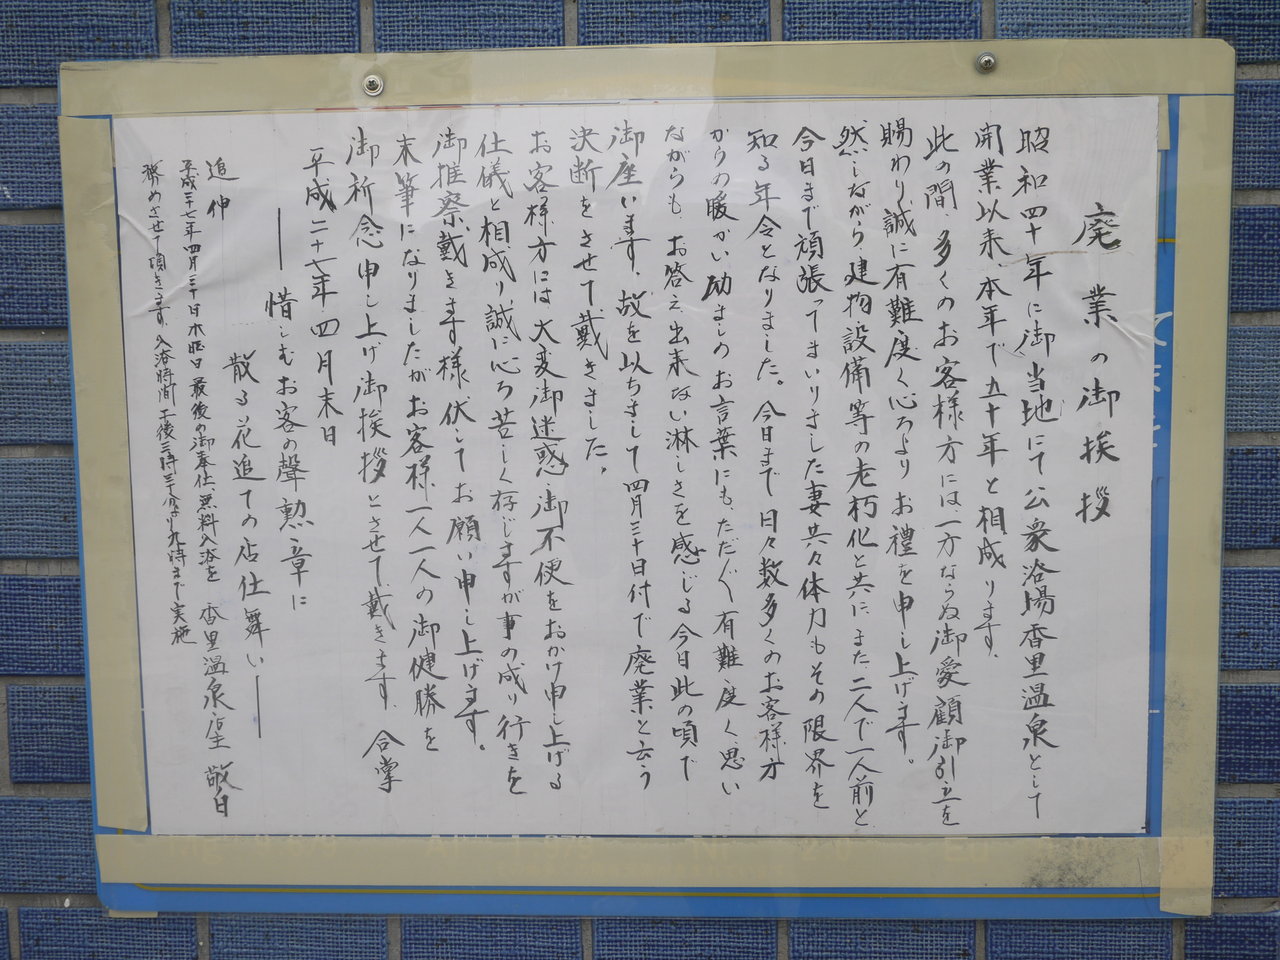 廃業の御挨拶
昭和四十年に御当地にて公衆浴場香里温泉として
開業以来、本年で五十年と相成ります。
此の間、多くのお客様方には一方ならぬ御愛顧御引立を
賜わり誠に有難度く心よりお礼を申し上げます。
然しながら建物設備等の老朽化と共にまた二人で一人前と
今日まで頑張ってまいりました妻共々体力もその限界を
知る年令となりました。今日まで日々数多くのお客様方
からの暖かい励ましのお言葉にもただ〲有難度く思い
ながらも、お答え出来ない淋しさを感じる今日此の頃で
御座います、故を以ちまして四月三十日付で廃業と云う
決断をさせて戴きました。
お客様方には大変御迷惑、御不便をおかけ申し上げる
仕儀と相成り誠に心苦しく存じますが事の成り行きを
御推察戴きます様伏してお願い申し上げます。
末筆になりましたがお客様一人一人の御健勝を
御祈念申し上げ御挨拶とさせて戴きます、合掌
平成二十七年四月末日
惜しむお客の聲勲章に
散る花追ての店仕舞い
香里温泉店 敬白
追伸
平成二十七年四月三十日木曜日最後の御奉仕、無料入浴を
務めさせて頂きます、入浴時間午後三時三十分より九時まで実施